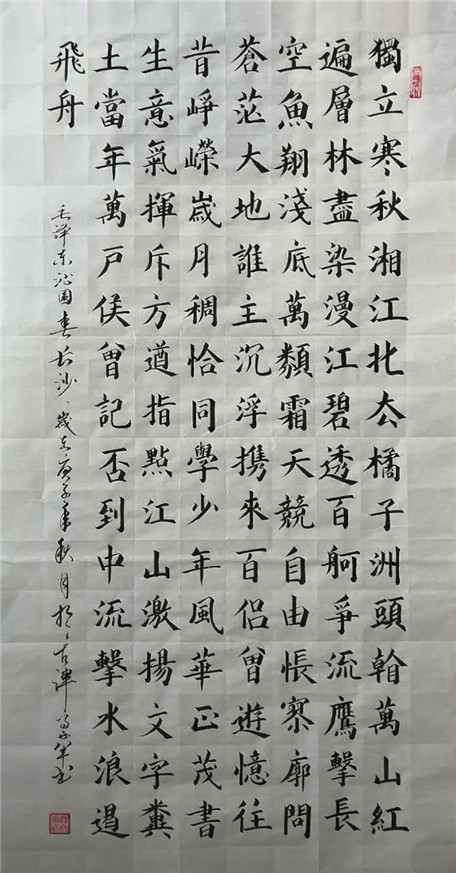 獨立寒秋湘江北去橘子洲頭翰萬山紅
遍層林盡染漫江碧透百舸爭流鷹擊長
空魚翔淺底萬類霜天競自由悵寥廓問
蒼茫大地誰主沉浮携來百侶曾遊憶往
昔崢嶸歲月稠恰同學少年風華正茂書
生意氣揮斥方遒指點江山激揚文字糞
土當年萬戶侯曾記否到中流擊水浪遏
飛舟
毛澤東沁園春長沙歲在庚子年秋月於古津